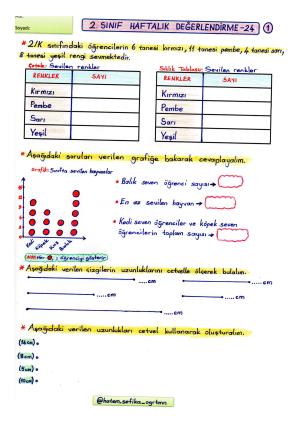 Soyadı:
2. SINIF HAFTALIK DEĞERLENDİRME-24
1
* 2/K sınıfındaki öğrencilerin 6 tanesi kırmızı, 11 tanesi pembe, 4 tanesi sarı,
8 tanesi yeşil rengi sevmektedir.
Çetele: Sevilen renkler
Sıklık Tablosu: Sevilen renkler
RENKLER SAYI
RENKLER SAYI
Kırmızı
Kırmızı
Pembe
Pembe
Sarı
Sarı
Yeşil
Yeşil
* Aşağıdaki soruları verilen grafiğe bakarak cevaplayalım.
Grafik: Sınıfta sevilen hayvanlar
* Balık seven öğrenci sayısı →
* En az sevilen hayvan →
* Kedi seven öğrenciler ve köpek seven
öğrencilerin toplam sayısı →
Kedi
Köpek
Kuş
Balık
öğrenciyi gösterir.
* Aşağıdaki verilen çizgilerin uzunluklarını cetvelle ölçerek bulalım.
.....cm
.....cm
.....cm
.....cm
* Aşağıdaki verilen uzunlukları cetvel kullanarak oluşturalım.
(8cm) •
(5cm) •
(10cm) •
@hatem.sefika_ogrtmn